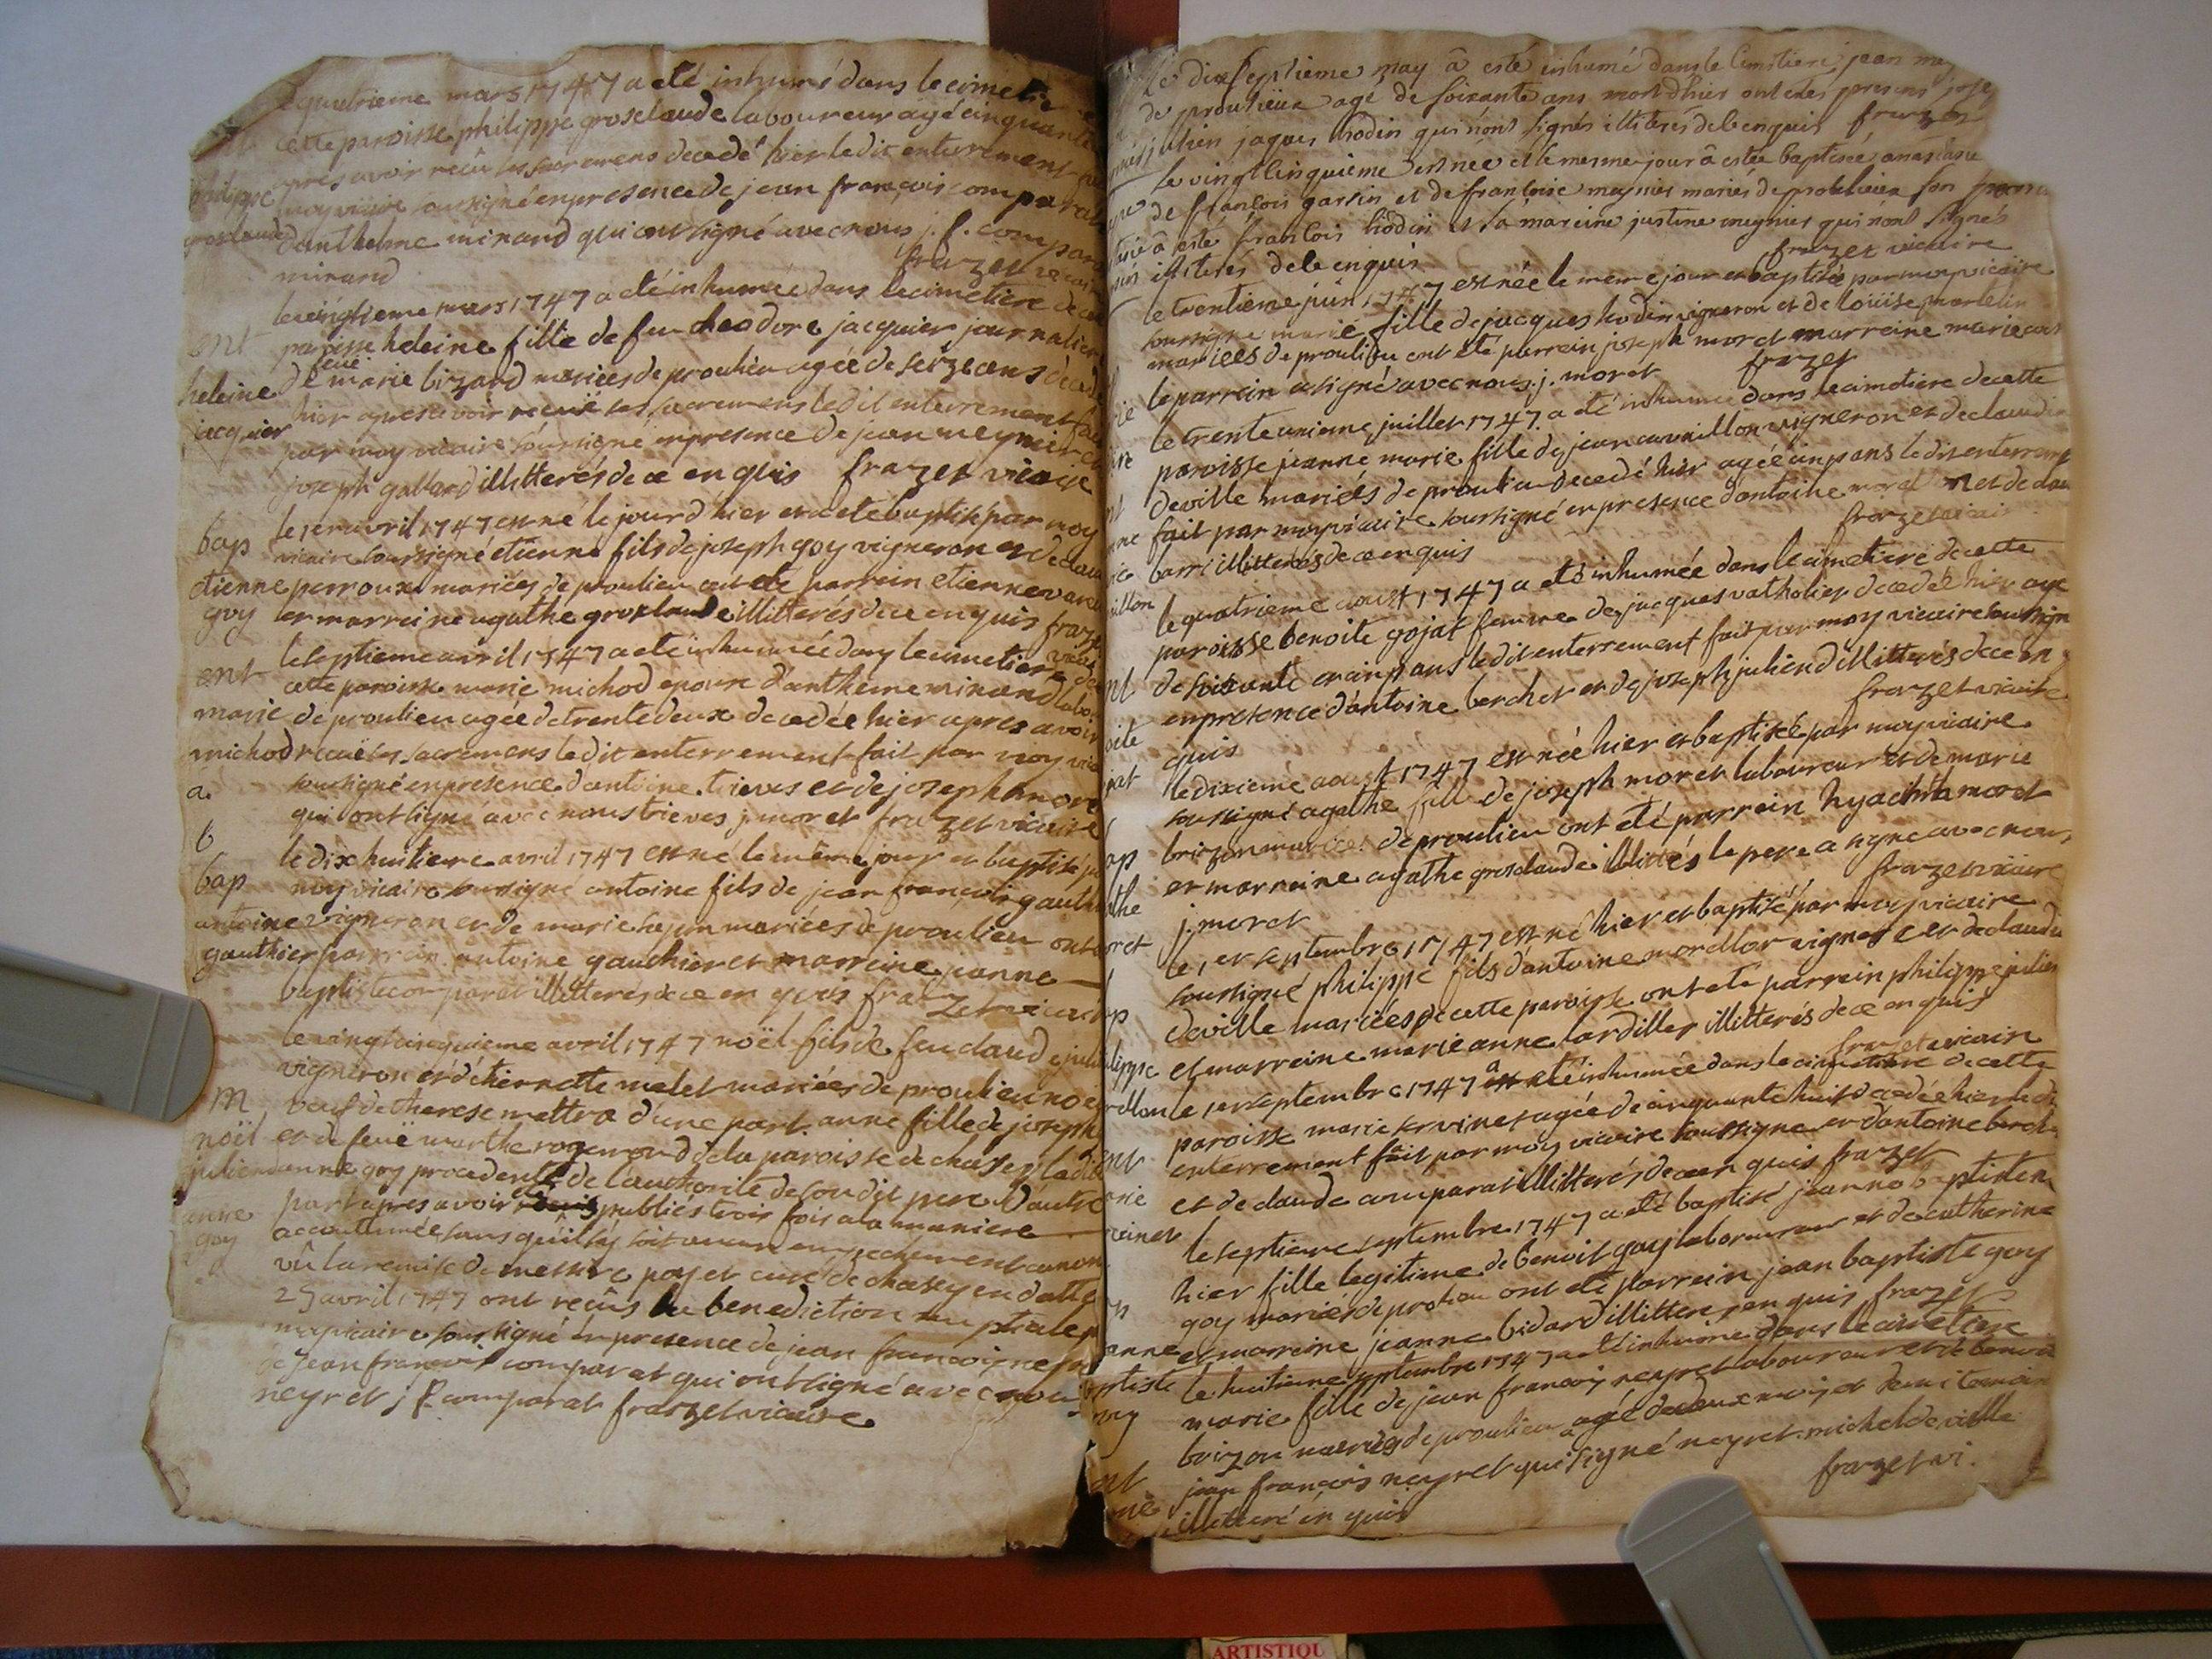 quatrieme mars 1747 a eté inhumé dans le cimetie
cette paroisse philippe groslaude laboureur agé cinquante
apres avoir reçu les sacremens decedé hier ledit enterrement
philippe moy vicaire soussigné en presence de jean françois comparat
groslaude d'anthelme minand qui ont signé avec nous j. f. compara
minand frazet vicai
le vingtieme mars 1747 a eté inhumée dans le cimetiere de
ent paroisse heleine fille de feu theodore jacquier journalier
feuë
heleine de marie bizard mariées de proulieu agée de seize ans deced
jacquier hier apres avoir receuë les sacremens ledit enterrement fai
par moy vicaire soussigné en presence de jean meynier et
joseph gallard illitterés de ce enquis frazet vicaire
bap le 1er avril 1747 est né le jour d'hier et a eté baptisé par moy
vicaire soussigné etienne fils de joseph goy vigneron et de clau
etienne perroux mariées de proulieu ont eté parrein etienne
goy et marreine agathe groslaude illitterés de ce enquis fraze
ent le septieme avril 1747 a eté inhumée dans le cimetiere de
cette paroisse marie michod epouse d'antheme minand labo
marie de proulieu agée de trente deux decedée hier apres avoir
michod receuë les sacremens ledit enterrement fait par moy vic
a. soussigné en presence d'antoine trieves et de joseph more
qui ont signé avec nous trieves j. moret frazet vicaire
b
le dix huitieme avril 1747 est né le même jour et baptisé p
bap moy vicaire soussigné antoine fils de jean françois gauth
antoine vigneron et de marie mariées de proulieu ont
gauthier parrein antoine gauthier et marreine jeanne
baptiste comparat illitterés de ce enquis frazet vicai
le vingt cinquieme avril 1747 noël fils de feu claude juli
vigneron et d'etiennette melet mariées de proulieu no
m veuf de therese mettra d'une part. anne fille de joseph
noël et de feuë marthe rogemond de la paroisse de chasey ladit
julien anne goy procedente de l'authorité de son dit pere d'autre
eté
anne part apres avoir publiés trois fois a la maniere
goy accoutumée sans qu'il s'y soit aucun empechement canon
vû la remise de messire poyet curé de chasey en datte
25 avril 1747 ont reçus la benediction nuptiale p
moy vicaire soussigné en presence de jean françois neyr
de jean françois comparat qui ont signé avec nous
neyret j f comparat frazet vicaire
le dixseptieme may â esté inhumé dans le cimetiere jean
de proulieu agé de soixante ans mort d'hier ont etés presens jose
julien jaques hodin qui n'ont signés illiterés de ce enquis frazet
le vingt cinquieme est née et le mesme jour â estée baptisée anastasie
de françois garsin et de françoise meynier mariés de proulieu son
â esté françois hodin et sa mareine justine meynier qui n'ont signés
illiterés de ce enquis frazet vicaire
le trentieme juin 1747 est née le meme jour et baptisée par moy vicaire
soussigné marie fille de jacques hodin vigneron et de louise martelin
mariées de proulieu ont eté parrein joseph moret marreine marie
le parrein a signé avec nous. j. moret frazet
le trente unieme juillet 1747 a eté inhumée dans le cimetiere de cette
paroisse jeanne marie fille de jean cavaillon vigneron et de claudi
deville mariées de proulieu decedé hier agée cinq ans ledit enterrem
fait par moy vicaire soussigné en presence d'antoine moral et de clau
barri illitterés de ce enquis frazet vicai
le quatrieme aoust 1747 a eté inhumée dans le cimetiere de cette
paroisse benoite gojat femme de jacques vatholier decedée hier agé
de soixante et cinq ans ledit enterrement fait par moy vicaire soussign
en presence d'antoine berchet et de joseph juliend illitterés de ce en
quis frazet vicaire
le dixieme aoust 1747 est née hier et baptisée par moy vicaire
soussigné agathe fille de joseph moret laboureur et de marie
brizon mariées de proulieu ont eté parrein hyacinthe moret
et marreine agathe groslaude illitterés le pere a signé avec nous
j. moret frazet vicaire
le 1er septembre 1747 est né hier et baptisé par moy vicaire
soussigné philippe fils d'antoine morellon vigneron et de claudi
deville mariées de cette paroisse ont eté parrein philippe julien
et marreine marie anne lardiller illitterés de ce enquis
frazet vicaire
le 1er septembre 1747 a eté inhumée dans le cimetiere de cette
paroisse marie servinet agée de cinquante huit decedée hier
enterrement fait par moy vicaire soussigné et d'antoine berch
et de claude comparat illitterés de ce enquis frazet
le septieme septembre 1747 a eté baptisé jeanne baptiste n
hier fille legitime de benoit goy laboureur et de catherine
goy mariées de proulieu ont eté parrein jean baptiste goy
et marreine jeanne bidard illitterés enquis frazet
le huitieme septembre 1747 a eté inhumé dans le cimetiere
marie fille de jean françois neyret laboureur et de benoi
boizon mariées de proulieu agée de deux mois et demi temoin
jean françois neyret qui signé neyret. michel deville
illitteré en quis frazet vi.
ARTISTIQU